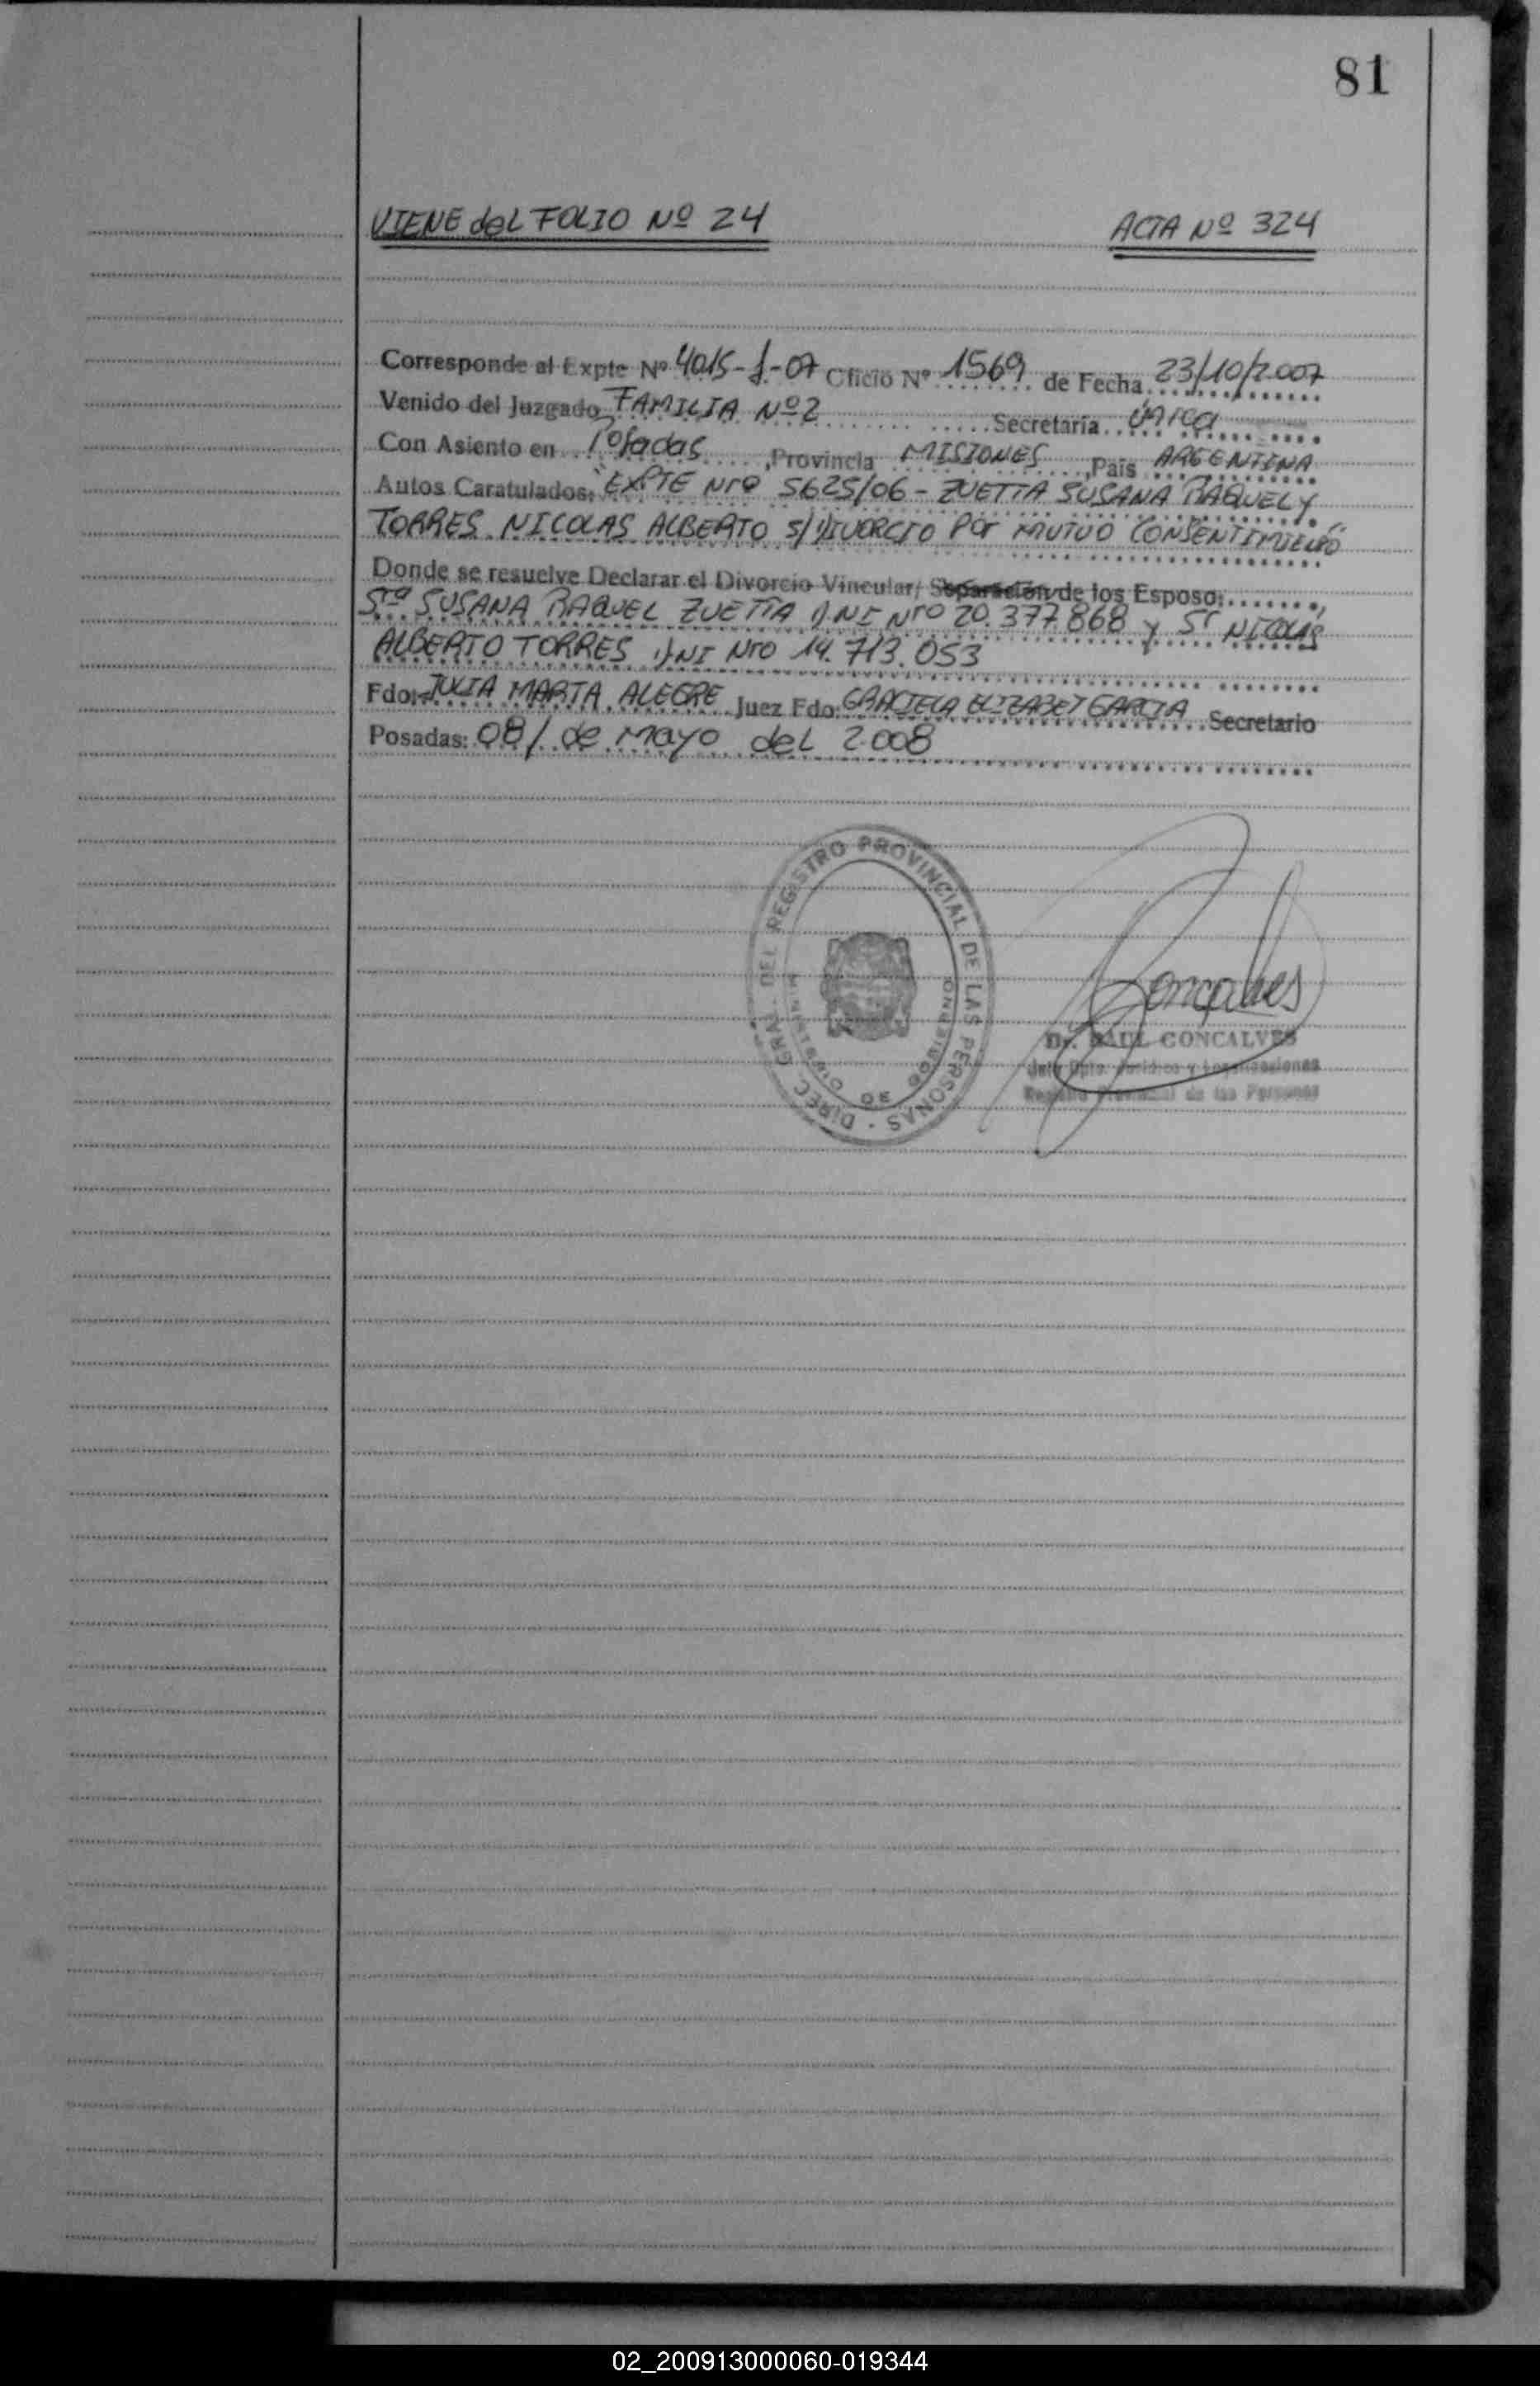 81
VIENE del FOLIO Nº 24 ACTA Nº 324
Corresponde al Expte Nº 4015-J-07 Oficio Nº 1569 de Fecha 23/10/2.007
Venido del Juzgado FAMILIA Nº 2 Secretaría Única
Con Asiento en Posadas, Provincia MISIONES, País ARGENTINA
Autos Caratulados: "EXPTE Nro 5625/06 - ZUETTA SUSANA RAQUEL Y
TORRES NICOLAS ALBERTO S/ DIVORCIO POR MUTUO CONSENTIMIENTO"
Donde se resuelve Declarar el Divorcio Vincular/ Separación de los Esposo:
Sra SUSANA RAQUEL ZUETTA DNI Nro 20.377.868 y Sr NICOLAS
ALBERTO TORRES DNI Nro 14.713.053
Fdo: JULIA MARTA ALEGRE Juez Fdo: GRACIELA ELIZABET GARCIA Secretario
Posadas: 08/ de Mayo del 2.008
DIREC. GRAL. DEL REGISTRO PROVINCIAL DE LAS PERSONAS
Goncalves
Dr. RAUL GONCALVES
Jefe Dpto. Jurídico y Legalizaciones
Registro Provincial de las Personas
02_200913000060-019344